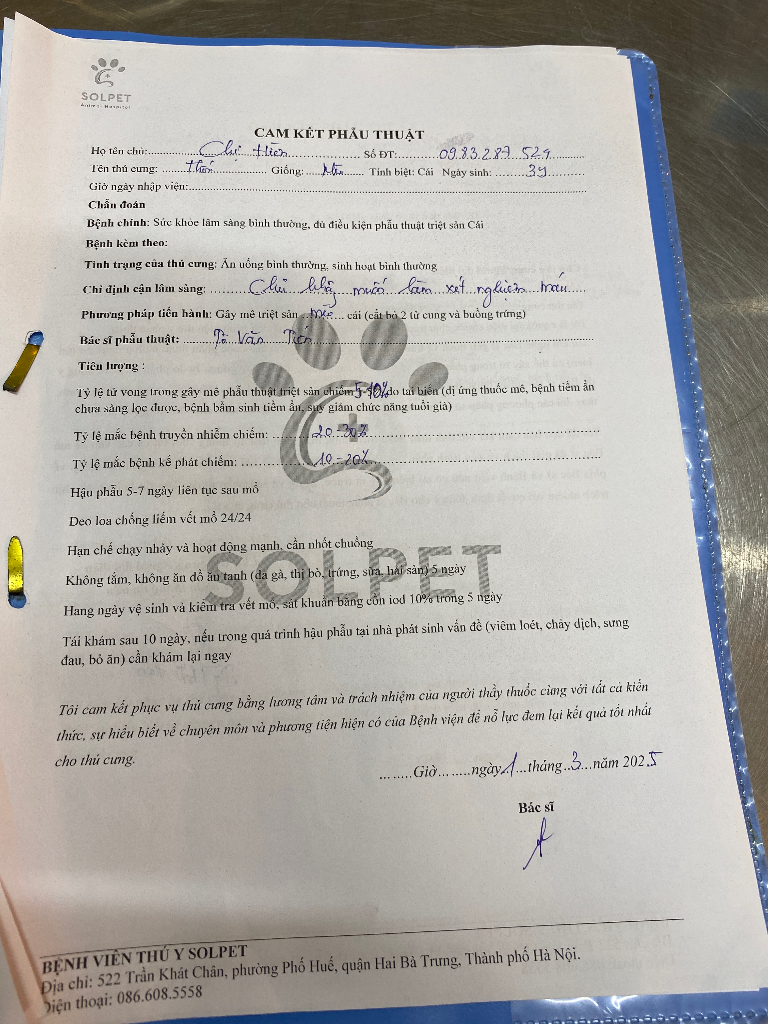 SOLPET
Animal Hospital
CAM KẾT PHẪU THUẬT
Họ tên chủ: Chị Hiền Số ĐT: 0983.287 529
Tên thú cưng: Giống: Tính biệt: Cái Ngày sinh: 3y
Giờ ngày nhập viện:
Chẩn đoán
Bệnh chính: Sức khỏe lâm sàng bình thường, đủ điều kiện phẫu thuật triệt sản Cái
Bệnh kèm theo:
Tình trạng của thú cưng: Ăn uống bình thường, sinh hoạt bình thường
Chỉ định cận lâm sàng: Chủ không muốn làm xét nghiệm máu
Phương pháp tiến hành: Gây mê triệt sản mèo cái (cắt bỏ 2 tử cung và buồng trứng)
Bác sĩ phẫu thuật: Tô Văn Tiến
Tiên lượng :
Tỷ lệ tử vong trong gây mê phẫu thuật triệt sản chiếm 5-10% do tai biến (dị ứng thuốc mê, bệnh tiềm ẩn
chưa sàng lọc được, bệnh bẩm sinh tiềm ẩn, suy giảm chức năng tuổi già)
Tỷ lệ mắc bệnh truyền nhiễm chiếm: 20-30%
Tỷ lệ mắc bệnh kế phát chiếm: 10-20%
Hậu phẫu 5-7 ngày liên tục sau mổ
Deo loa chống liếm vết mổ 24/24
Hạn chế chạy nhảy và hoạt động mạnh, cần nhốt chuồng
Không tắm, không ăn đồ ăn tanh (da gà, thị bò, trứng, sữa, hải sản) 5 ngày
SOLPET
Hang ngày vệ sinh và kiểm tra vết mổ, sát khuẩn bằng cồn iod 10% trong 5 ngày
Tái khám sau 10 ngày, nếu trong quá trình hậu phẫu tại nhà phát sinh vấn đề (viêm loét, chảy dịch, sưng
đau, bỏ ăn) cần khám lại ngay
Tôi cam kết phục vụ thú cưng bằng lương tâm và trách nhiệm của người thầy thuốc cùng với tất cả kiến
thức, sự hiểu biết về chuyên môn và phương tiện hiện có của Bệnh viện để nỗ lực đem lại kết quả tốt nhất
cho thú cưng.
........Giờ........ngày 1...tháng..3...năm 2025
Bác sĩ
BỆNH VIÊN THÚ Y SOLPET
Địa chỉ: 522 Trần Khát Chân, phường Phố Huế, quận Hai Bà Trưng, Thành phố Hà Nội.
Điện thoại: 086.608.5558